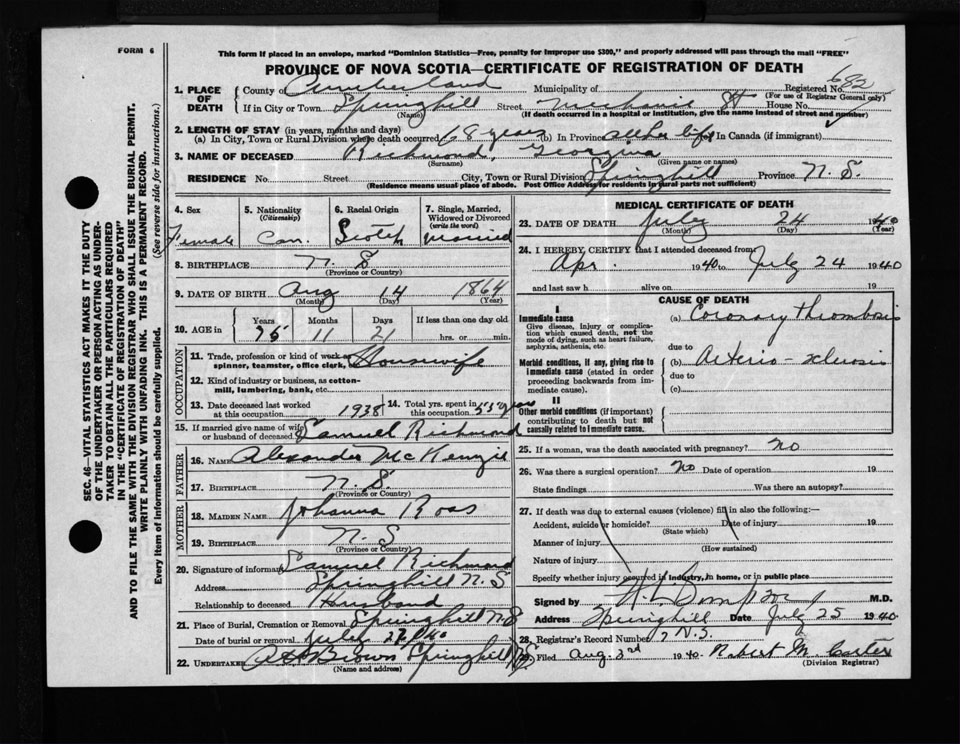 FORM 6
This form if placed in an envelope, marked "Dominion Statistics—Free, penalty for improper use $300," and properly addressed will pass through the mail "FREE"
PROVINCE OF NOVA SCOTIA—CERTIFICATE OF REGISTRATION OF DEATH
682
1. PLACE OF DEATH
County of Cumberland Municipality of Registered No.
(For use of Registrar General only)
If in City or Town Springhill Street Mechanic St House No.
(Name) (If death occurred in a hospital or institution, give the name instead of street and number)
2. LENGTH OF STAY (in years, months and days)
(a) In City, Town or Rural Division where death occurred 68 years (b) In Province all her life In Canada (if immigrant)
3. NAME OF DECEASED Richmond, Georgina
(Surname) (Given name or names)
RESIDENCE No. Street City, Town or Rural Division Springhill Province N. S.
(Residence means usual place of abode. Post Office Address for residents in rural parts not sufficient)
4. Sex
Female
5. Nationality (Citizenship)
Can.
6. Racial Origin
Scotch
7. Single, Married, Widowed or Divorced (write the word)
Married
8. BIRTHPLACE N. S
(Province or Country)
9. DATE OF BIRTH Aug 14 1864
(Month) (Day) (Year)
10. AGE in
Years Months Days If less than one day old
75 11 21 hrs. or min.
OCCUPATION
11. Trade, profession or kind of work as spinner, teamster, office clerk, Housewife
12. Kind of industry or business, as cotton-mill, lumbering, bank, etc.
13. Date deceased last worked at this occupation 1938
14. Total yrs. spent in this occupation 53 years
15. If married give name of wife or husband of deceased Samuel Richmond
FATHER
16. NAME Alexander McKenzie
17. BIRTHPLACE N. S.
(Province or Country)
MOTHER
18. MAIDEN NAME Johanna Ross
19. BIRTHPLACE N. S
(Province or Country)
20. Signature of informant Samuel Richmond
Address Springhill N. S
Relationship to deceased Husband
21. Place of Burial, Cremation or Removal Springhill NS
Date of burial or removal July 27
22. UNDERTAKER Brown Springhill NS
MEDICAL CERTIFICATE OF DEATH
23. DATE OF DEATH July 24 1940
(Month) (Day) (Year)
24. I HEREBY, CERTIFY that I attended deceased from
Apr. 1940 to July 24 1940
and last saw h alive on 19
CAUSE OF DEATH
I
Immediate cause
Give disease, injury or complication which caused death, not the mode of dying, such as heart failure, asphyxia, asthenia, etc.
(a) Coronary Thrombosis
due to
Morbid conditions, if any, giving rise to immediate cause (stated in order proceeding backwards from immediate cause).
(b) Arterio-sclerosis
due to
(c)
II
Other morbid conditions (if important) contributing to death but not causally related to immediate cause.
25. If a woman, was the death associated with pregnancy? No
26. Was there a surgical operation? No Date of operation 19
State findings Was there an autopsy?
27. If death was due to external causes (violence) fill in also the following:—
Accident, suicide or homicide? Date of injury 19
(State which)
Manner of injury
(How sustained)
Nature of injury
Specify whether injury occurred in industry, in home, or in public place
Signed by M.D.
Address Springhill Date July 25 1940
28. Registrar's Record Number N.S.
29. Filed Aug. 3rd 1940 Robert M. Carter
(Division Registrar)
SEC. 46—VITAL STATISTICS ACT MAKES IT THE DUTY
OF THE UNDERTAKER OR PERSON ACTING AS UNDER-
TAKER TO OBTAIN ALL THE PARTICULARS REQUIRED
IN THE "CERTIFICATE OF REGISTRATION OF DEATH"
AND TO FILE THE SAME WITH THE DIVISION REGISTRAR WHO SHALL ISSUE THE BURIAL PERMIT.
WRITE PLAINLY WITH UNFADING INK. THIS IS A PERMANENT RECORD.
Every item of information should be carefully supplied. (See reverse side for instructions.)